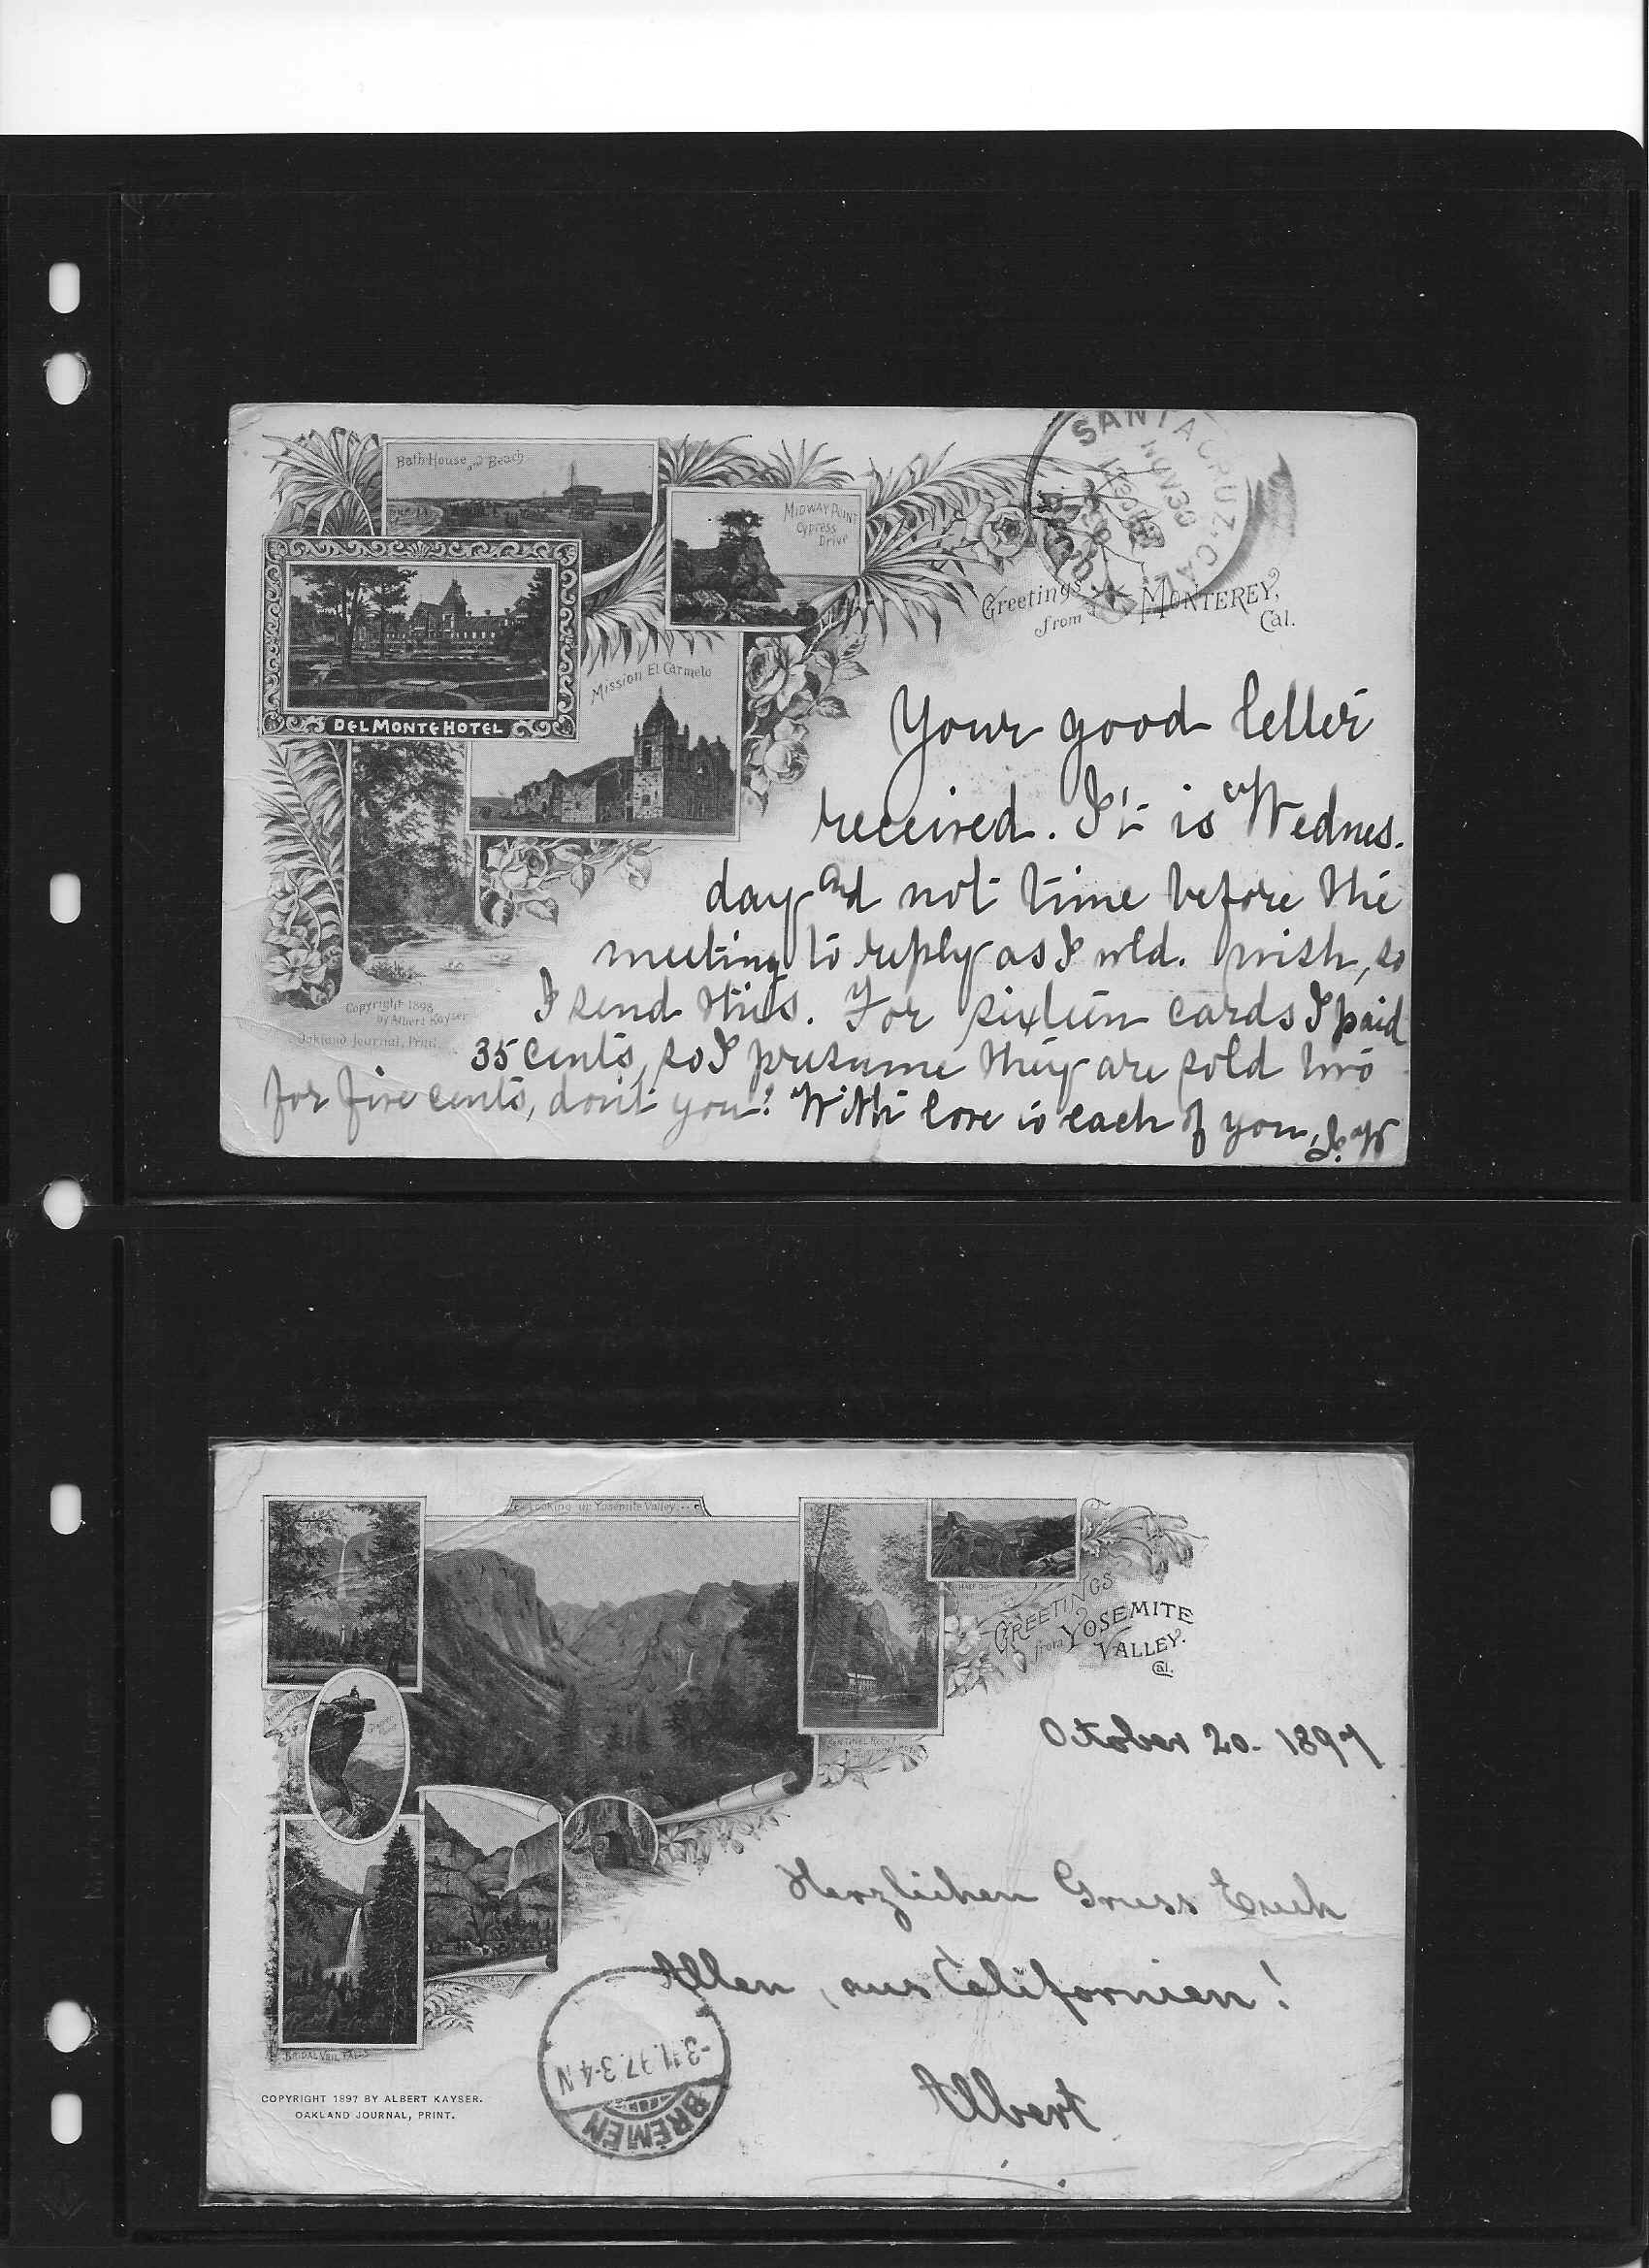 Bath House and Beach
MIDWAY POINT
Cypress
Drive
SANTA CRUZ. CAL.
NOV 30
REC'D.
Greetings
from MONTEREY,
Cal.
DEL MONTE HOTEL
Mission El Carmelo
Your good letter
received. It is Wednes-
day and not time before the
meeting to reply as I wld. wish, so
I send this. For sixteen cards I paid
35 cents, so I presume they are sold two
for five cents, don't you? With love to each of you, L.W
Copyright 1898
by Albert Kayser
Oakland Journal, Print.
Looking up Yosemite Valley
GREETINGS
from YOSEMITE
VALLEY.
Cal.
SENTINEL ROCK
October 20. 1897
Herzlichen Gruss Euch
Allen, aus Californien!
Albert
BRIDAL VEIL FALLS
BREMEN
-3.11.97.3-4 N
COPYRIGHT 1897 BY ALBERT KAYSER.
OAKLAND JOURNAL, PRINT.